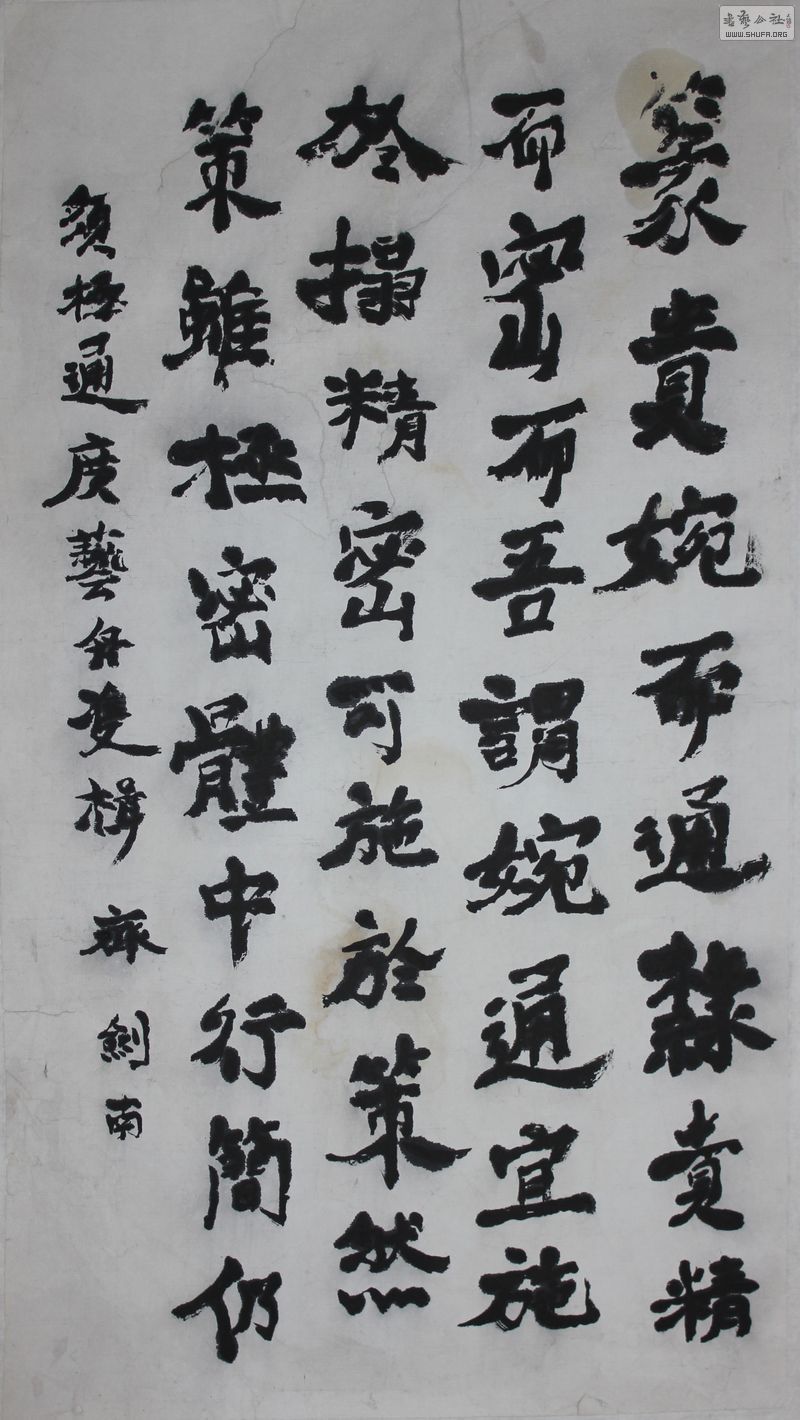 篆貴婉而通隸貴精
而密而吾謂婉通宜施
於搨精密可施於策然
策雖極密體中行簡仍
須極通 廣藝舟雙楫 齋劍南
書藝公社
WWW.SHUFA.ORG